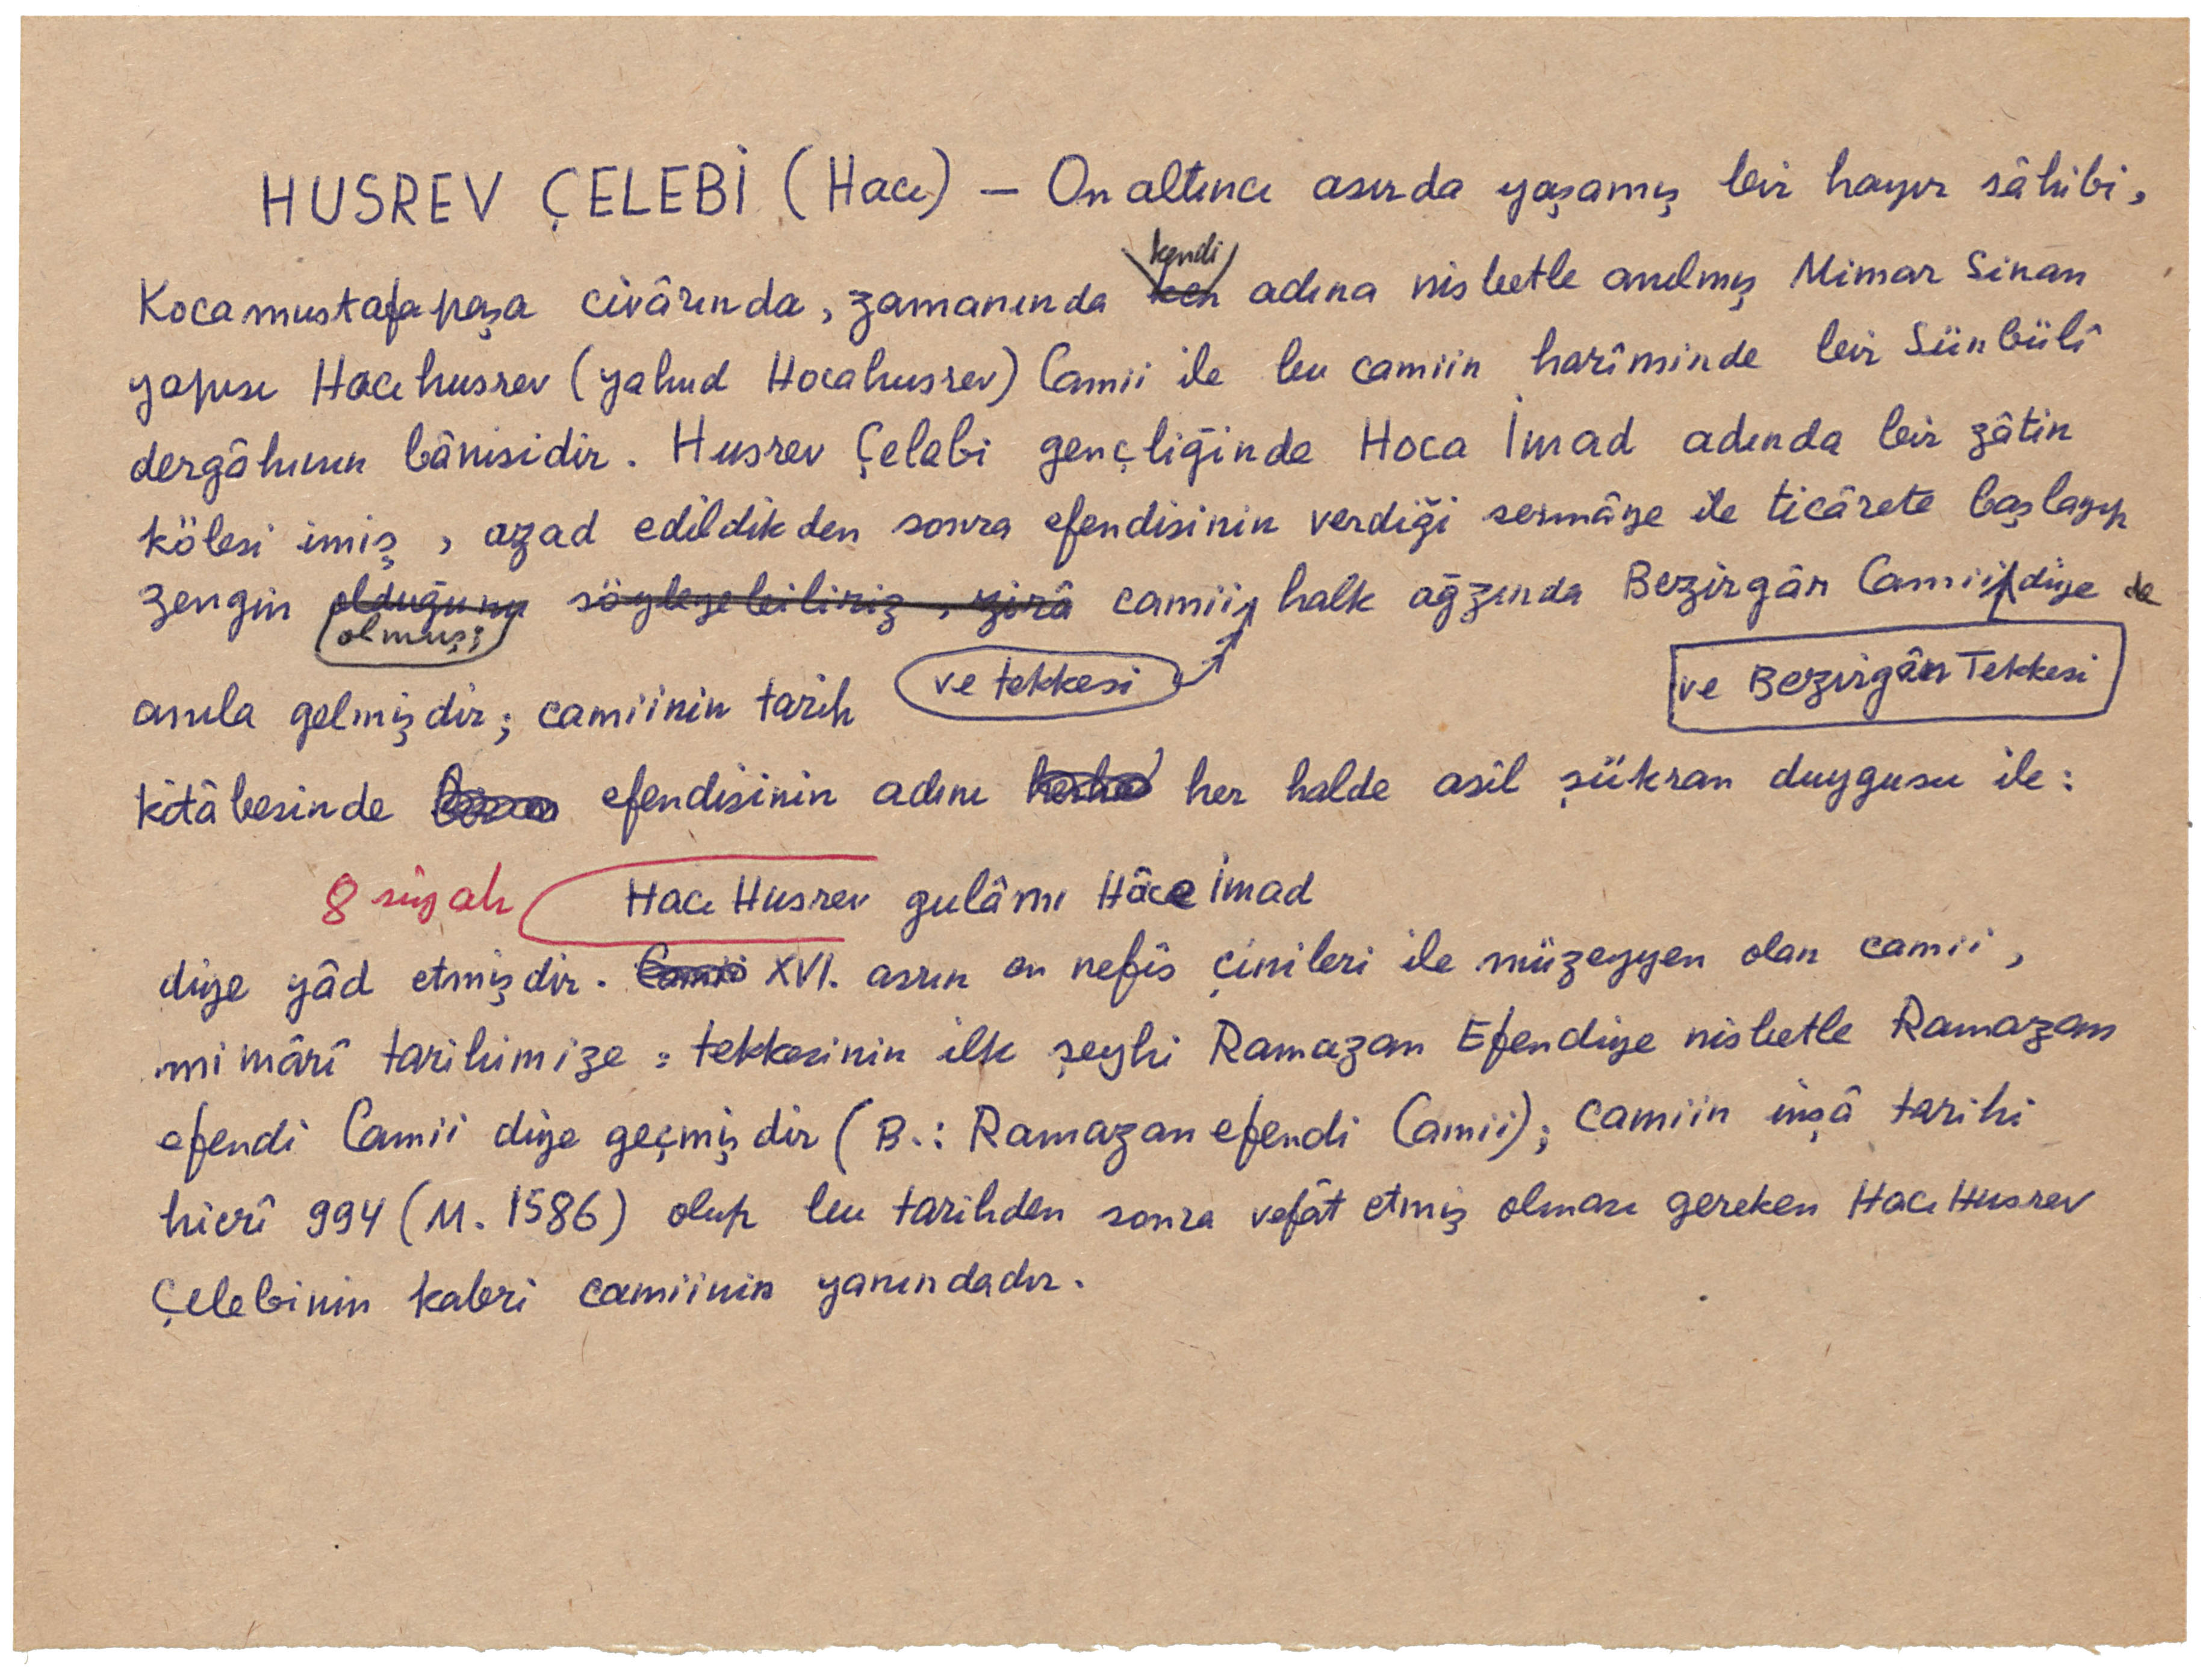 HUSREV ÇELEBİ (Hacı) — On altıncı asırda yaşamış bir hayır sâhibi,
kendi
Kocamustafapaşa civârında, zamanında ken adına nisbetle anılmış Mimar Sinan
yapısı Hacıhusrev (yahud Hocahusrev) Camii ile bu camiin harîminde bir Sünbülî
dergâhının bânisidir. Husrev Çelebi gençliğinde Hoca İmad adında bir zâtin
kölesi imiş, azad edildikden sonra efendisinin verdiği sermâye ile ticârete başlayıp
zengin olduğunu söyleyebiliriz, zirâ camii halk ağzında Bezirgân Camii diye de
olmuş;
ve tekkesi
ve Bezirgân Tekkesi
anıla gelmişdir; camiinin tarih
kitâbesinde efendisinin adını her halde asîl şükran duygusu ile:
8 siyah Hacı Husrev gulâmı Hâce İmad
diye yâd etmişdir. Camii XVI. asrın en nefis çinileri ile müzeyyen olan camii,
mimârî tarihimize : tekkesinin ilk şeyhi Ramazan Efendiye nisbetle Ramazan
efendi Camii diye geçmişdir (B.: Ramazanefendi Camii); camiin inşâ tarihi
hicrî 994 (M. 1586) olup bu tarihden sonra vefât etmiş olması gereken Hacı Husrev
Çelebinin kabri camiinin yanındadır.